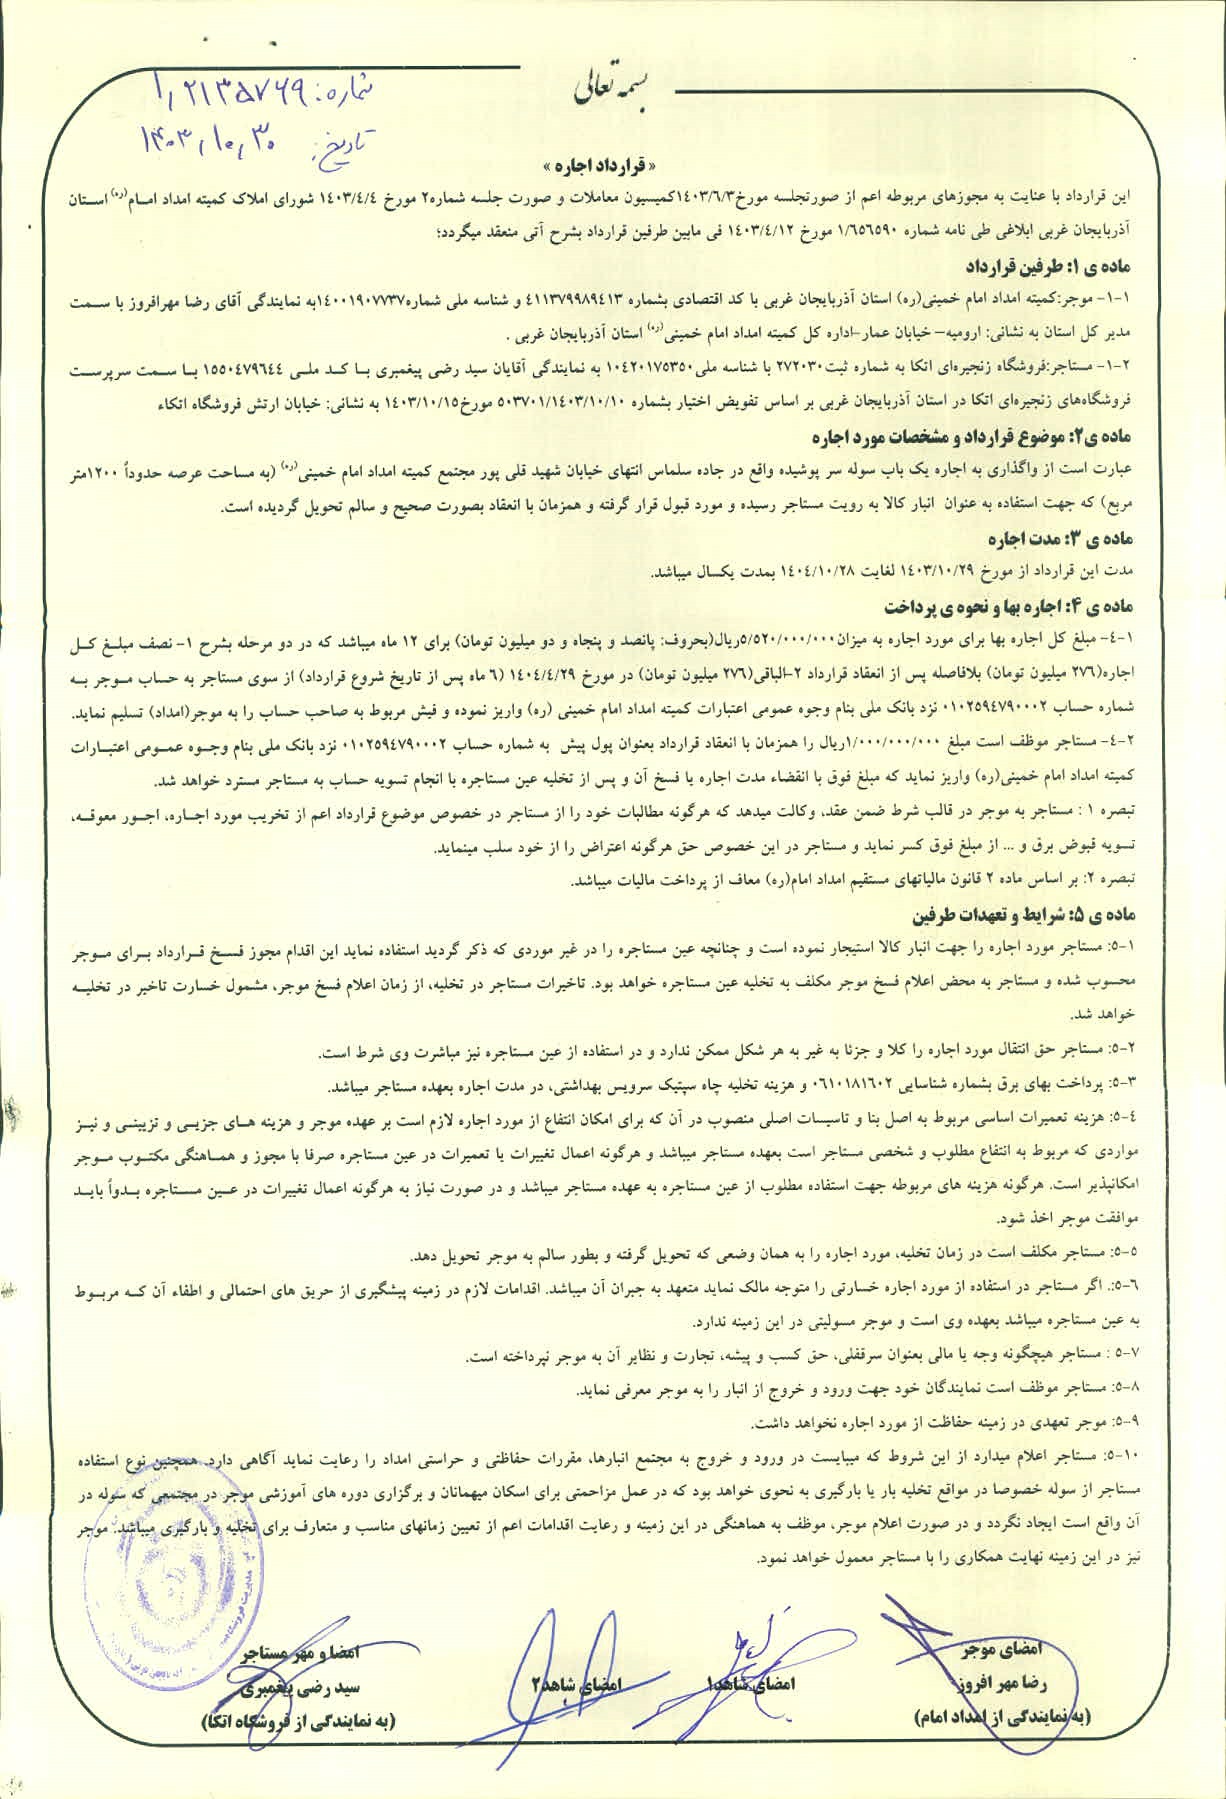 بسمه تعالی
شماره: ۱٫۲۱۳۵۷۶۹
تاریخ: ۱۴۰۳٫۱۰٫۳۰
« قرارداد اجاره »
این قرارداد با عنایت به مجوزهای مربوطه اعم از صورتجلسه مورخ۱۴۰۳/۶/۳کمیسیون معاملات و صورت جلسه شماره۲ مورخ ۱۴۰۳/۴/۴ شورای املاک کمیته امداد امام(ره) استان
آذربایجان غربی ابلاغی طی نامه شماره ۱/۶۵۶۵۹۰ مورخ ۱۴۰۳/۴/۱۲ فی مابین طرفین قرارداد بشرح آتی منعقد میگردد؛
ماده ی ۱: طرفین قرارداد
۱-۱- موجر:کمیته امداد امام خمینی(ره) استان آذربایجان غربی با کد اقتصادی بشماره ۴۱۱۳۷۹۹۸۹۴۱۳ و شناسه ملی شماره۱۴۰۰۱۹۰۷۷۳۷به نمایندگی آقای رضا مهرافروز با سمت
مدیر کل استان به نشانی: ارومیه– خیابان عمار-اداره کل کمیته امداد امام خمینی(ره) استان آذربایجان غربی .
۱-۲- مستاجر:فروشگاه زنجیره‌ای اتکا به شماره ثبت۲۷۲۰۳۰ با شناسه ملی۱۰۴۲۰۱۷۵۳۵۰ به نمایندگی آقایان سید رضی پیغمبری با کد ملی ۱۵۵۰۴۷۹۶۴۴ با سمت سرپرست
فروشگاه‌های زنجیره‌ای اتکا در استان آذربایجان غربی بر اساس تفویض اختیار بشماره ۵۰۳۷۰۱/۱۴۰۳/۱۰/۱۰ مورخ۱۴۰۳/۱۰/۱۵ به نشانی: خیابان ارتش فروشگاه اتکاء
ماده ی۲: موضوع قرارداد و مشخصات مورد اجاره
عبارت است از واگذاری به اجاره یک باب سوله سر پوشیده واقع در جاده سلماس انتهای خیابان شهید قلی پور مجتمع کمیته امداد امام خمینی(ره) (به مساحت عرصه حدوداً ۱۲۰۰متر
مربع) که جهت استفاده به عنوان انبار کالا به رویت مستاجر رسیده و مورد قبول قرار گرفته و همزمان با انعقاد بصورت صحیح و سالم تحویل گردیده است.
ماده ی ۳: مدت اجاره
مدت این قرارداد از مورخ ۱۴۰۳/۱۰/۲۹ لغایت ۱۴۰۴/۱۰/۲۸ بمدت یکسال میباشد.
ماده ی ۴: اجاره بها و نحوه ی پرداخت
۴-۱- مبلغ کل اجاره بها برای مورد اجاره به میزان۵/۵۲۰/۰۰۰/۰۰۰ریال(بحروف: پانصد و پنجاه و دو میلیون تومان) برای ۱۲ ماه میباشد که در دو مرحله بشرح ۱- نصف مبلغ کل
اجاره(۲۷۶ میلیون تومان) بلافاصله پس از انعقاد قرارداد ۲-الباقی(۲۷۶ میلیون تومان) در مورخ ۱۴۰۴/۴/۲۹ (۶ ماه پس از تاریخ شروع قرارداد) از سوی مستاجر به حساب موجر به
شماره حساب ۰۱۰۲۵۹۴۷۹۰۰۰۲ نزد بانک ملی بنام وجوه عمومی اعتبارات کمیته امداد امام خمینی (ره) واریز نموده و فیش مربوط به صاحب حساب را به موجر(امداد) تسلیم نماید.
۴-۲- مستاجر موظف است مبلغ ۱/۰۰۰/۰۰۰/۰۰۰ریال را همزمان با انعقاد قرارداد بعنوان پول پیش به شماره حساب ۰۱۰۲۵۹۴۷۹۰۰۰۲ نزد بانک ملی بنام وجوه عمومی اعتبارات
کمیته امداد امام خمینی(ره) واریز نماید که مبلغ فوق با انقضاء مدت اجاره یا فسخ آن و پس از تخلیه عین مستاجره با انجام تسویه حساب به مستاجر مسترد خواهد شد.
تبصره ۱ : مستاجر به موجر در قالب شرط ضمن عقد، وکالت میدهد که هرگونه مطالبات خود را از مستاجر در خصوص موضوع قرارداد اعم از تخریب مورد اجاره، اجور معوقه،
تسویه قبوض برق و ... از مبلغ فوق کسر نماید و مستاجر در این خصوص حق هرگونه اعتراض را از خود سلب مینماید.
تبصره ۲: بر اساس ماده ۲ قانون مالیاتهای مستقیم امداد امام(ره) معاف از پرداخت مالیات میباشد.
ماده ی ۵: شرایط و تعهدات طرفین
۵-۱: مستاجر مورد اجاره را جهت انبار کالا استیجار نموده است و چنانچه عین مستاجره را در غیر موردی که ذکر گردید استفاده نماید این اقدام مجوز فسخ قرارداد برای موجر
محسوب شده و مستاجر به محض اعلام فسخ موجر مکلف به تخلیه عین مستاجره خواهد بود. تاخیرات مستاجر در تخلیه، از زمان اعلام فسخ موجر، مشمول خسارت تاخیر در تخلیه
خواهد شد.
۵-۲: مستاجر حق انتقال مورد اجاره را کلا و جزئا به غیر به هر شکل ممکن ندارد و در استفاده از عین مستاجره نیز مباشرت وی شرط است.
۵-۳: پرداخت بهای برق بشماره شناسایی ۰۶۱۰۱۸۱۶۰۲ و هزینه تخلیه چاه سپتیک سرویس بهداشتی، در مدت اجاره بعهده مستاجر میباشد.
۵-۴: هزینه تعمیرات اساسی مربوط به اصل بنا و تاسیسات اصلی منصوب در آن که برای امکان انتفاع از مورد اجاره لازم است بر عهده موجر و هزینه های جزیی و تزیینی و نیز
مواردی که مربوط به انتفاع مطلوب و شخصی مستاجر است بعهده مستاجر میباشد و هرگونه اعمال تغییرات یا تعمیرات در عین مستاجره صرفا با مجوز و هماهنگی مکتوب موجر
امکانپذیر است. هرگونه هزینه های مربوطه جهت استفاده مطلوب از عین مستاجره به عهده مستاجر میباشد و در صورت نیاز به هرگونه اعمال تغییرات در عین مستاجره بدواً باید
موافقت موجر اخذ شود.
۵-۵: مستاجر مکلف است در زمان تخلیه، مورد اجاره را به همان وضعی که تحویل گرفته و بطور سالم به موجر تحویل دهد.
۵-۶:. اگر مستاجر در استفاده از مورد اجاره خسارتی را متوجه مالک نماید متعهد به جبران آن میباشد. اقدامات لازم در زمینه پیشگیری از حریق های احتمالی و اطفاء آن که مربوط
به عین مستاجره میباشد بعهده وی است و موجر مسولیتی در این زمینه ندارد.
۵-۷ : مستاجر هیچگونه وجه یا مالی بعنوان سرقفلی، حق کسب و پیشه، تجارت و نظایر آن به موجر نپرداخته است.
۵-۸: مستاجر موظف است نمایندگان خود جهت ورود و خروج از انبار را به موجر معرفی نماید.
۵-۹: موجر تعهدی در زمینه حفاظت از مورد اجاره نخواهد داشت.
۵-۱۰: مستاجر اعلام میدارد از این شروط که میبایست در ورود و خروج به مجتمع انبارها، مقررات حفاظتی و حراستی امداد را رعایت نماید آگاهی دارد. همچنین نوع استفاده
مستاجر از سوله خصوصا در مواقع تخلیه بار یا بارگیری به نحوی خواهد بود که در عمل مزاحمتی برای اسکان میهمانان و برگزاری دوره های آموزشی موجر در مجتمعی که سوله در
آن واقع است ایجاد نگردد و در صورت اعلام موجر، موظف به هماهنگی در این زمینه و رعایت اقدامات اعم از تعیین زمانهای مناسب و متعارف برای تخلیه و بارگیری میباشد. موجر
نیز در این زمینه نهایت همکاری را با مستاجر معمول خواهد نمود.
امضای موجر
رضا مهر افروز
(به نمایندگی از امداد امام)
امضای شاهد۱
امضای شاهد۲
امضا و مهر مستاجر
سید رضی پیغمبری
(به نمایندگی از فروشگاه اتکا)